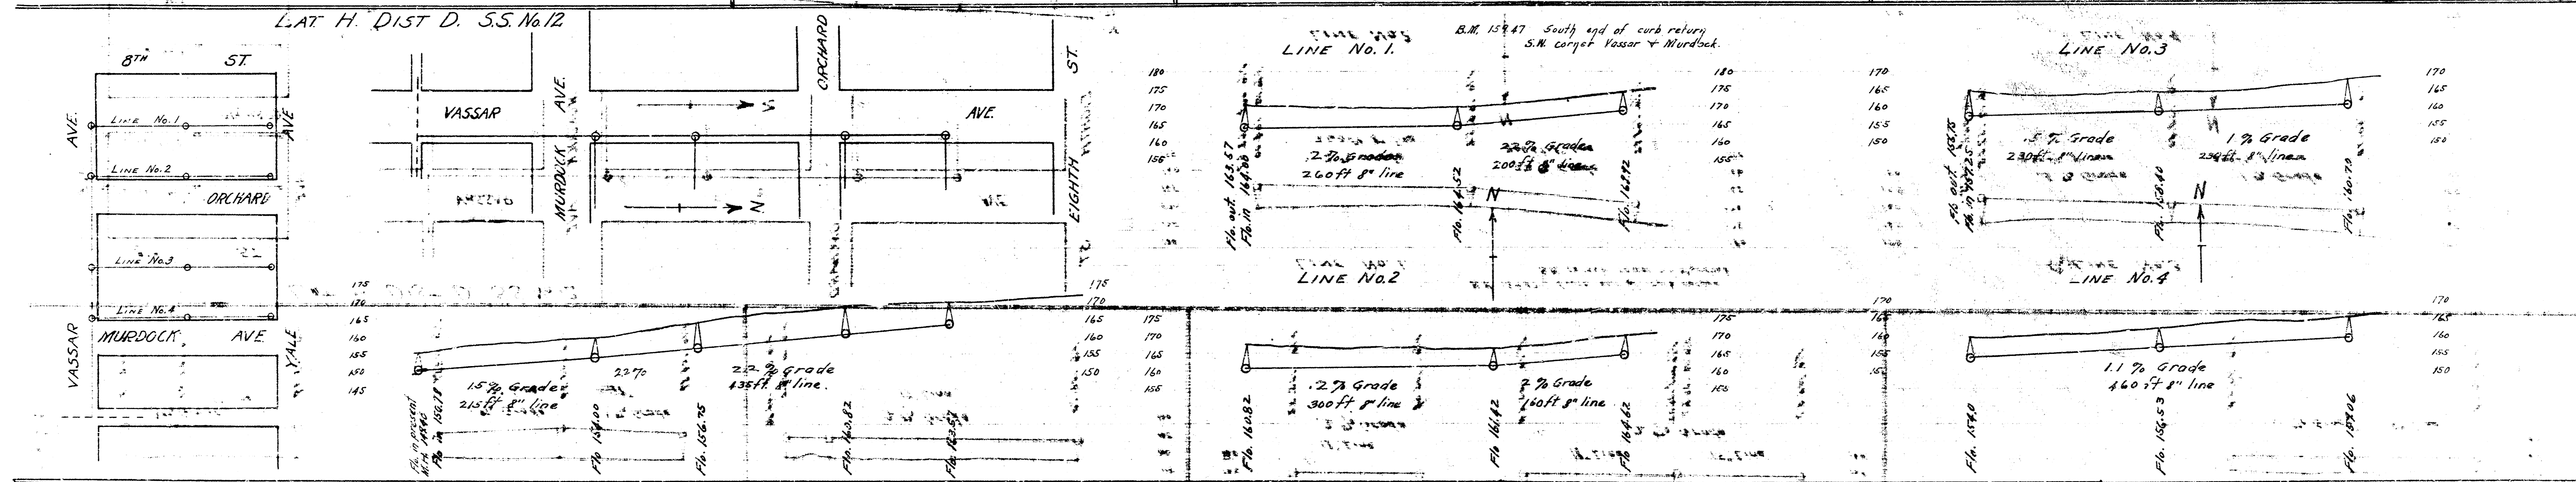 LAT. H. DIST D. S.S. No. 12
8TH ST.
AVE.
AVE
LINE No. 1
LINE No. 2
ORCHARD
LINE No. 3
LINE No. 4
MURDOCK AVE.
VASSAR
YALE
VASSAR AVE.
MURDOCK AVE.
ORCHARD
EIGHTH ST.
N.
175
170
165
160
155
150
145
175
170
165
160
155
150
1.5% Grade
215 ft 8" line
2.2%
2.2% Grade
435 ft 8" line.
Flo. in present
Flo in 150.78
Flo 154.00
Flo. 156.75
Flo. 160.82
Flo. 163.57
B.M. 159.47 South end of curb return
S.W. corner Vassar + Murdock.
LINE No. 1.
180
175
170
165
160
155
180
175
170
165
160
155
.2% Grade
260 ft 8" line
2.2% Grade
200 ft 8" line
Flo. out 163.57
Flo. in 164.00
Flo. 164.52
Flo. 168.92
N
LINE No. 2
175
170
165
160
155
175
170
165
160
155
.2% Grade
300 ft 8" line
2% Grade
160 ft 8" line
Flo. 160.82
Flo 161.42
Flo 164.62
LINE No. 3
170
165
160
155
150
170
165
160
155
150
.5% Grade
230 ft 8" line
1% Grade
230 ft 8" line
Flo out 155.75
Flo. in 157.25
Flo. 158.40
Flo. 160.70
N
LINE No. 4
170
165
160
155
150
170
165
160
155
150
1.1% Grade
460 ft 8" line
Flo. 154.0
Flo. 156.53
Flo 159.06